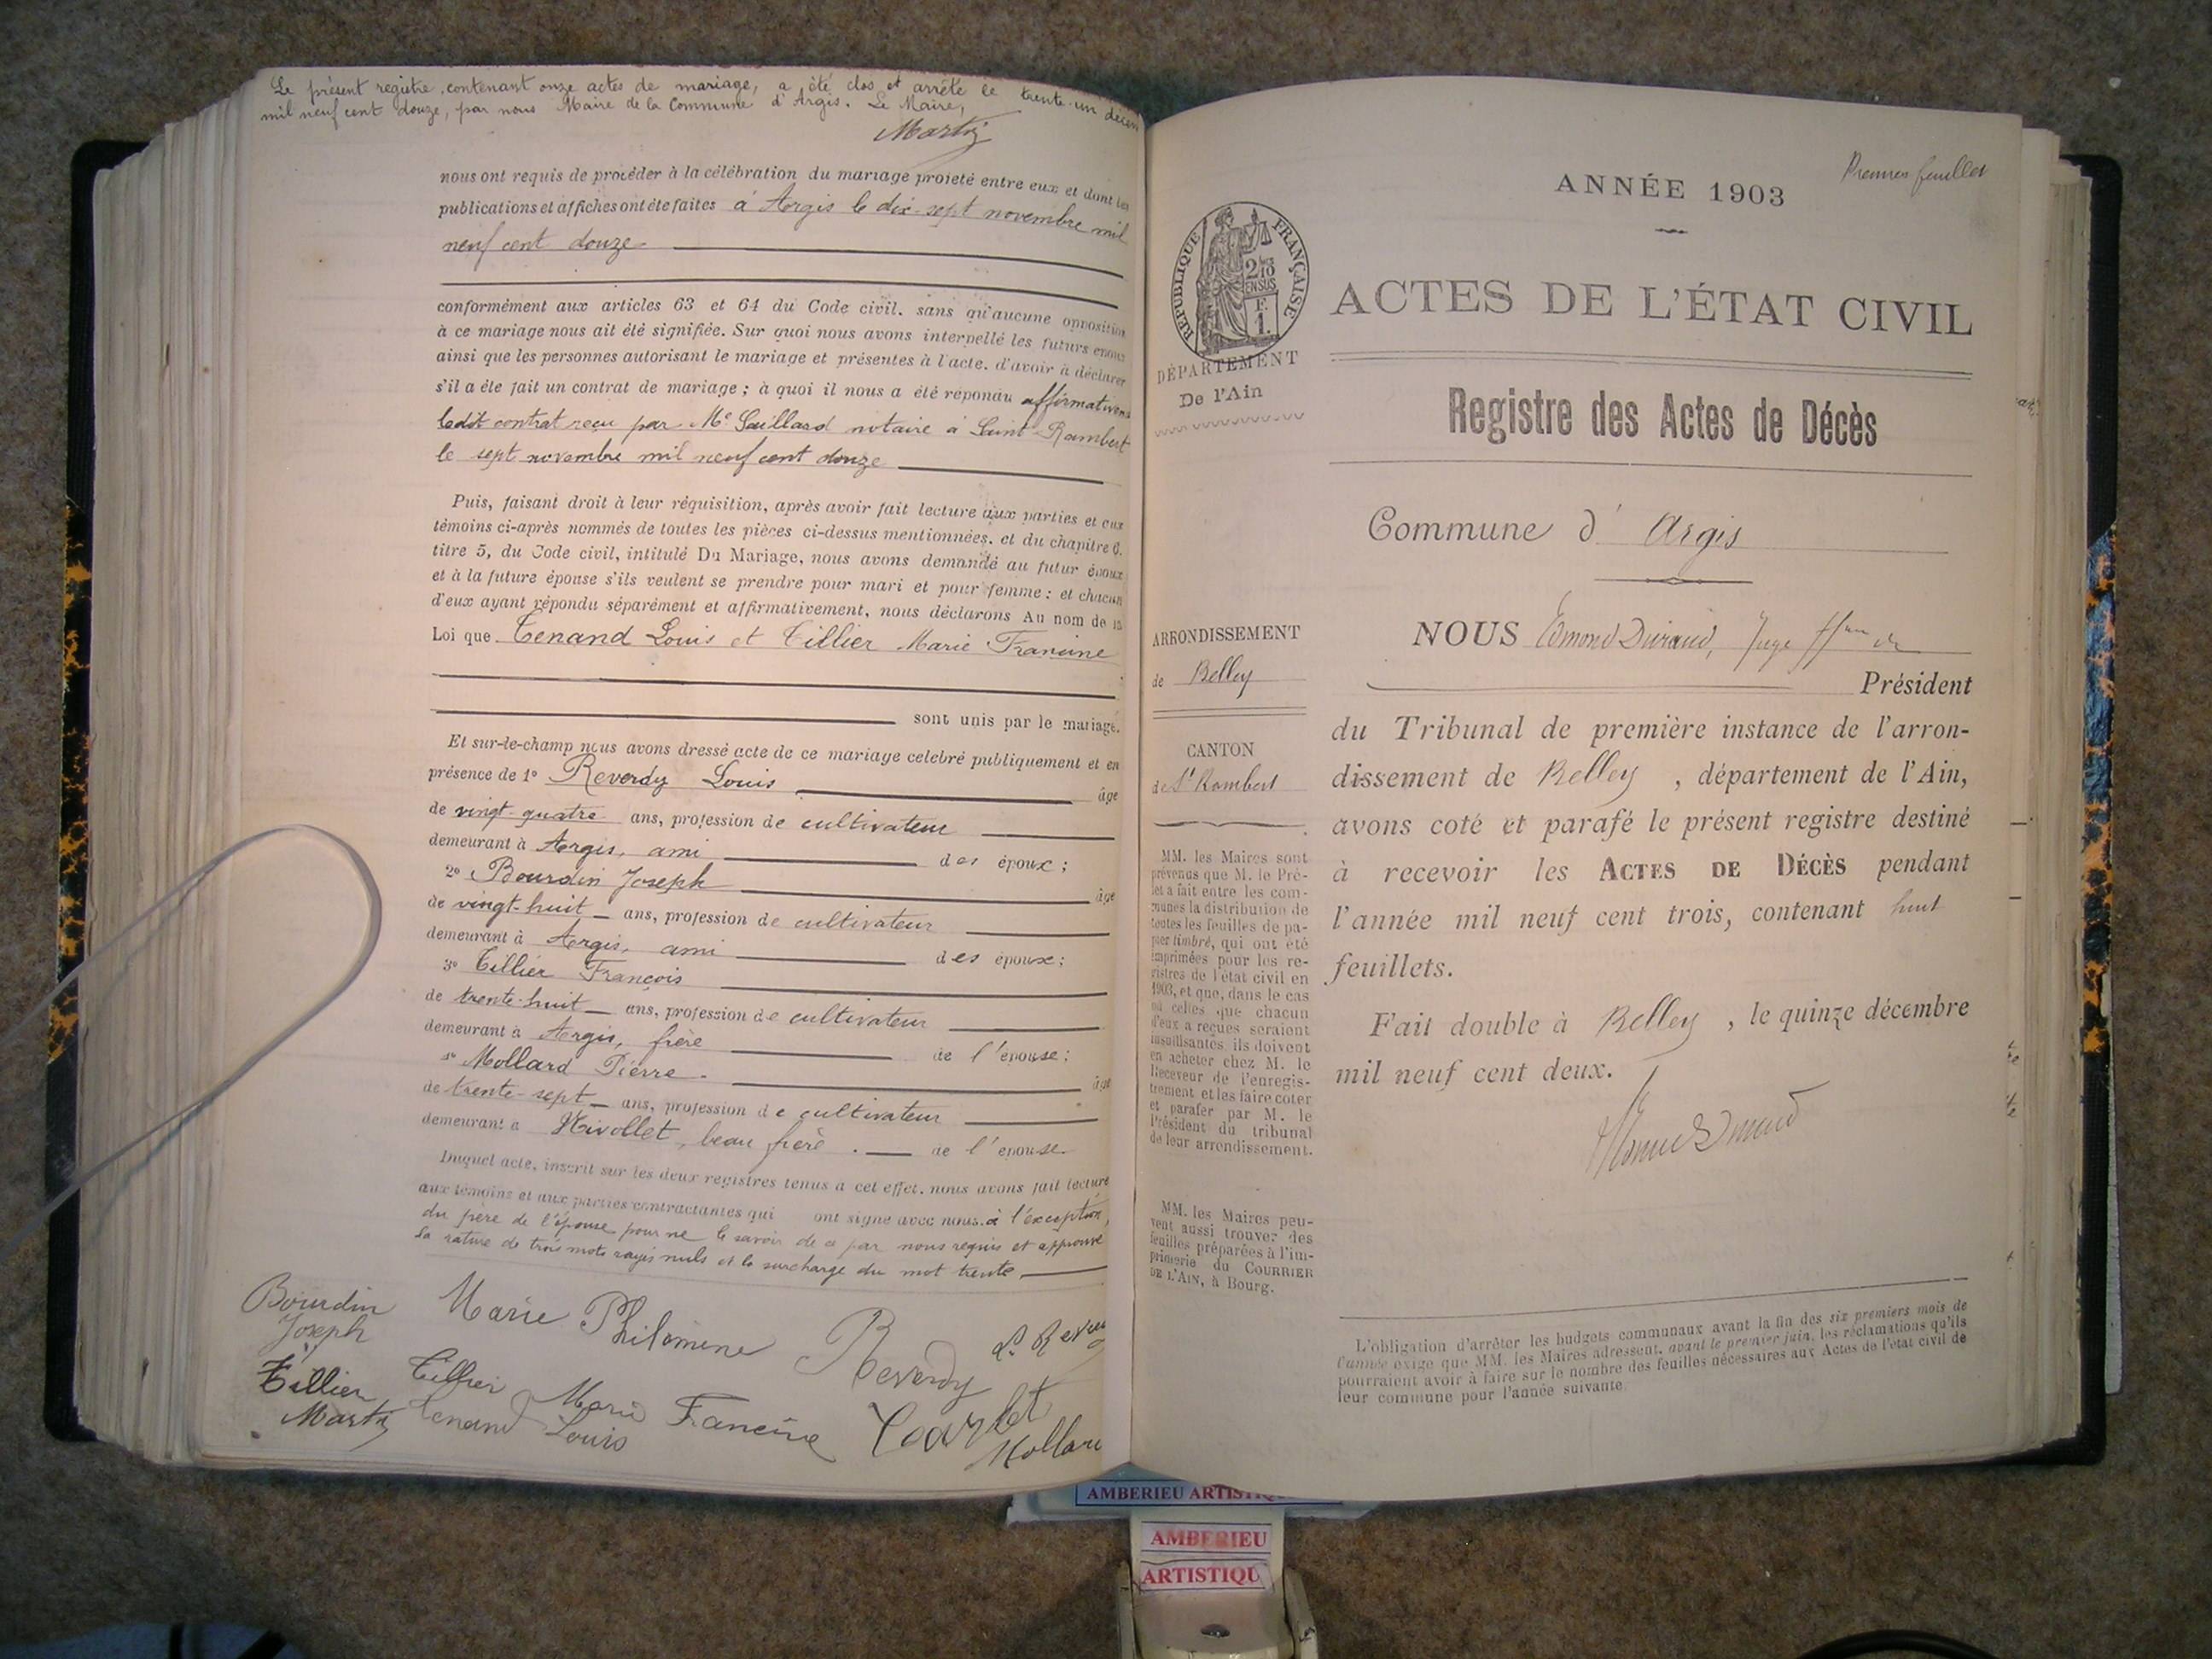 Le présent registre, contenant onze actes de mariage, a été clos et arrêté le trente-un décem
mil neuf cent douze, par nous Maire de la Commune d'Argis. Le Maire,
Martin
nous ont requis de procéder à la célébration du mariage projeté entre eux et dont les
publications et affiches ont été faites à Argis le dix-sept novembre mil
neuf cent douze
conformément aux articles 63 et 64 du Code civil, sans qu'aucune opposition
à ce mariage nous ait été signifiée. Sur quoi nous avons interpellé les futurs époux
ainsi que les personnes autorisant le mariage et présentes à l'acte, d'avoir à déclarer
s'il a été fait un contrat de mariage ; à quoi il nous a été répondu affirmativem
ledit contrat reçu par Me Saillard notaire à Saint-Rambert
le sept novembre mil neuf cent douze
Puis, faisant droit à leur réquisition, après avoir fait lecture aux parties et aux
témoins ci-après nommés de toutes les pièces ci-dessus mentionnées, et du chapitre 6,
titre 5, du Code civil, intitulé Du Mariage, nous avons demandé au futur époux
et à la future épouse s'ils veulent se prendre pour mari et pour femme ; et chacun
d'eux ayant répondu séparément et affirmativement, nous déclarons Au nom de la
Loi que Tenand Louis et Tillier Marie Francine
sont unis par le mariage.
Et sur-le-champ nous avons dressé acte de ce mariage célébré publiquement et en
présence de 1° Reverdy Louis âgé
de vingt-quatre ans, profession de cultivateur
demeurant à Argis, ami des époux ;
2° Bourdin Joseph âgé
de vingt-huit ans, profession de cultivateur
demeurant à Argis, ami des époux ;
3° Tillier François
de trente-huit ans, profession de cultivateur
demeurant à Argis, frère de l'épouse ;
4° Mollard Pierre âgé
de trente-sept ans, profession de cultivateur
demeurant à Nivollet, beau frère de l'épouse
Duquel acte, inscrit sur les deux registres tenus à cet effet, nous avons fait lecture
aux témoins et aux parties contractantes qui ont signé avec nous, à l'exception,
du père de l'épouse pour ne le savoir de ce par nous requis et approuvé
la rature de trois mots rayés nuls et la surcharge du mot trente
Bourdin Joseph
Marie Philomène
Reverdy
L. Rever
Tillier
Tillier Marie Francine
Coarlet
Martin
Tenand Louis
Mollard
Premier feuillet
ANNÉE 1903
RÉPUBLIQUE FRANÇAISE
2 10es EN SUS
F. 1.
ACTES DE L'ÉTAT CIVIL
DÉPARTEMENT
De l'Ain
Registre des Actes de Décès
Commune d'Argis
ARRONDISSEMENT
de Belley
CANTON
de St Rambert
NOUS Edmond Durand, Juge ffon de
Président
du Tribunal de première instance de l'arron-
dissement de Belley, département de l'Ain,
avons coté et parafé le présent registre destiné
à recevoir les ACTES DE DÉCÈS pendant
l'année mil neuf cent trois, contenant huit
feuillets.
Fait double à Belley, le quinze décembre
mil neuf cent deux.
MM. les Maires sont
prévenus que M. le Pré-
fet a fait entre les com-
munes la distribution de
toutes les feuilles de pa-
pier timbré, qui ont été
imprimées pour les re-
gistres de l'état civil en
1903, et que, dans le cas
où celles que chacun
d'eux a reçues seraient
insuffisantes ils doivent
en acheter chez M. le
Receveur de l'enregis-
trement et les faire coter
et parafer par M. le
Président du tribunal
de leur arrondissement.
MM. les Maires peu-
vent aussi trouver des
feuilles préparées à l'im-
primerie du COURRIER
DE L'AIN, à Bourg.
L'obligation d'arrêter les budgets communaux avant la fin des six premiers mois de
l'année exige que MM. les Maires adressent, avant le premier juin, les réclamations qu'ils
pourraient avoir à faire sur le nombre des feuilles nécessaires aux Actes de l'état civil de
leur commune pour l'année suivante.
AMBERIEU ARTISTIQ
AMBERIEU
ARTISTIQU